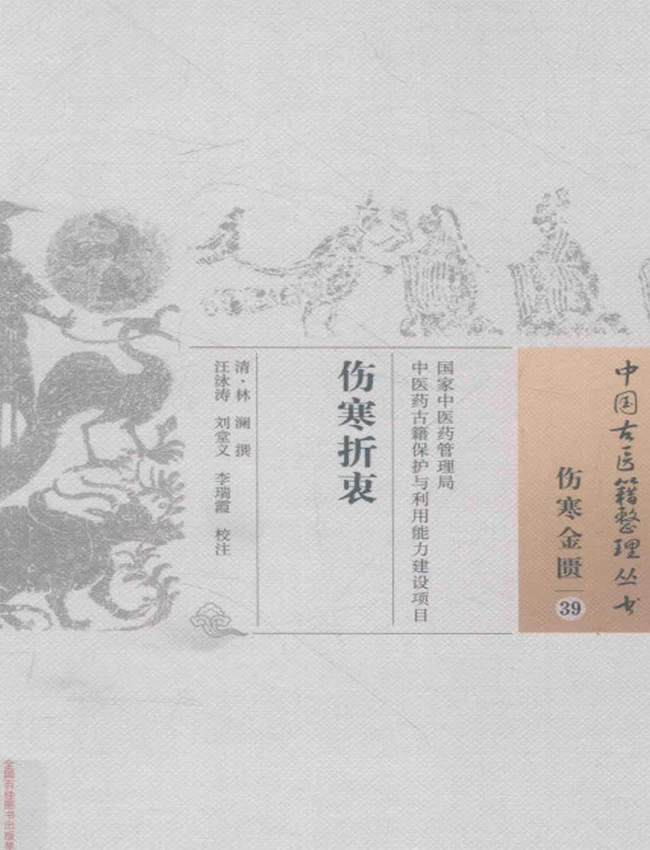 中国古医籍整理丛书
伤寒金匮
39
国家中医药管理局
中医药古籍保护与利用能力建设项目
伤寒折衷
清·林 澜 撰
汪泳涛 刘堂义 李瑞霞 校注
全国百佳图书出版单